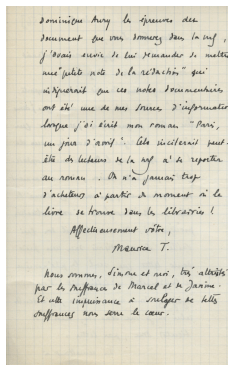 Dominique Aury les épreuves des
document que vous donnerez dans la nrf,
j'avais envie de lui demander de mettre
une "petite note de la rédaction" qui
indiquerait que ces notes documentaires
ont été une de mes sources d'information
lorsque j'ai écrit mon roman "Paris,
un jour d'avril". Cela inciterait peut-
être des lecteurs de la nrf à se reporter
au roman... On n'a jamais trop
d'acheteurs à partir du moment où le
livre se trouve dans les librairies !
Affectueusement vôtre,
Maurice T.
Nous sommes, Simone et moi, très attristés
par les souffrances de Marcel et de Janine.
Et cette impuissance à soulager de telles
souffrances nous serre le cœur.